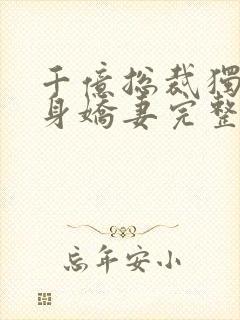 千億总裁獨
身嬌妻完整
忘年安小